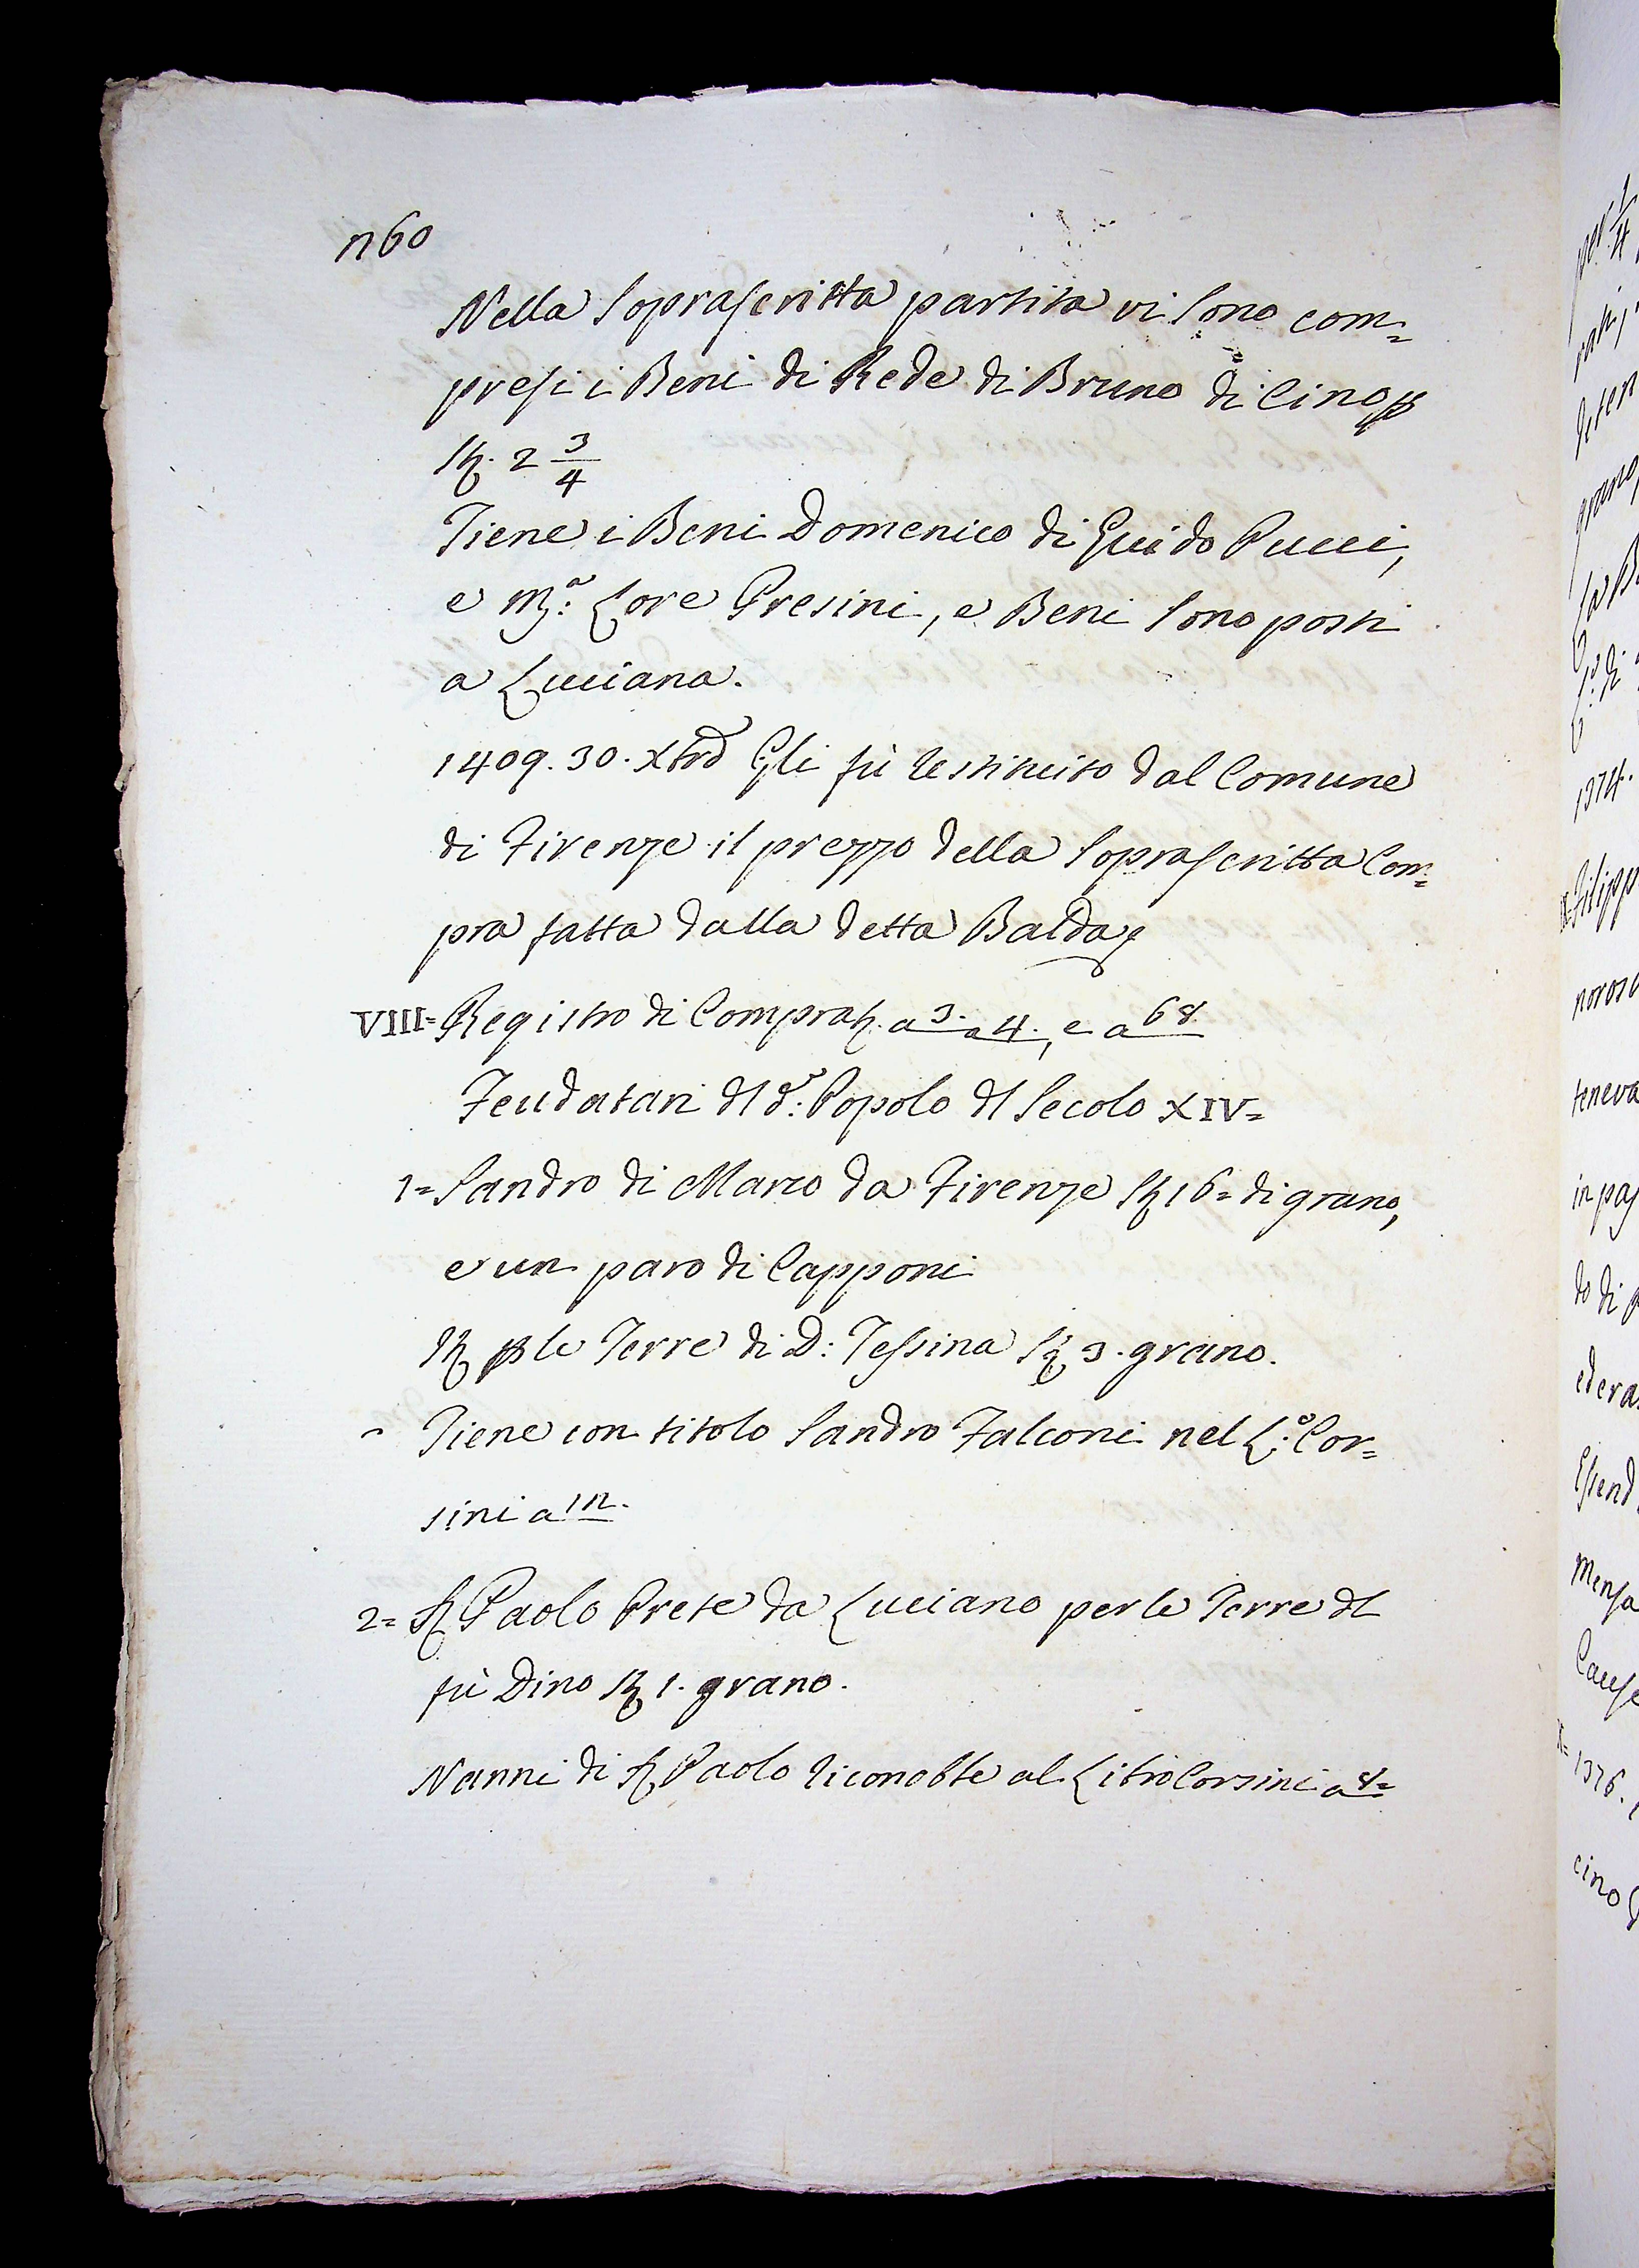 n60
Nella soprascritta partita vi sono com=
presi i Beni di Rede di Bruno di Cino p
St. 2 3/4
Tiene i Beni Domenico di Guido Pucci,
e Mª: Lore Presini, e Beni sono posti
a Luciana.
1409. 30. Xbre Gli fù restituito dal Comune
di Firenze il prezzo della soprascritta Com=
pra fatta dalla detta Balda
VIII= Registro di Compra a 3. a 4., e a 68
Feudatari dl dº: Popolo dl Secolo XIV=
1= Sandro di Marco da Firenze St 16= di grano,
e un paro di Capponi
St p le Terre di D: Tessina St 3. grano.
Tiene con titolo Sandro Falconi nel Lº: Cor=
sini a 12.
2= Paolo Prete da Luciano per le Terre dl
fù Dino St 1. grano.
Nanni di Paolo riconobbe al Libro Corsini a 8=